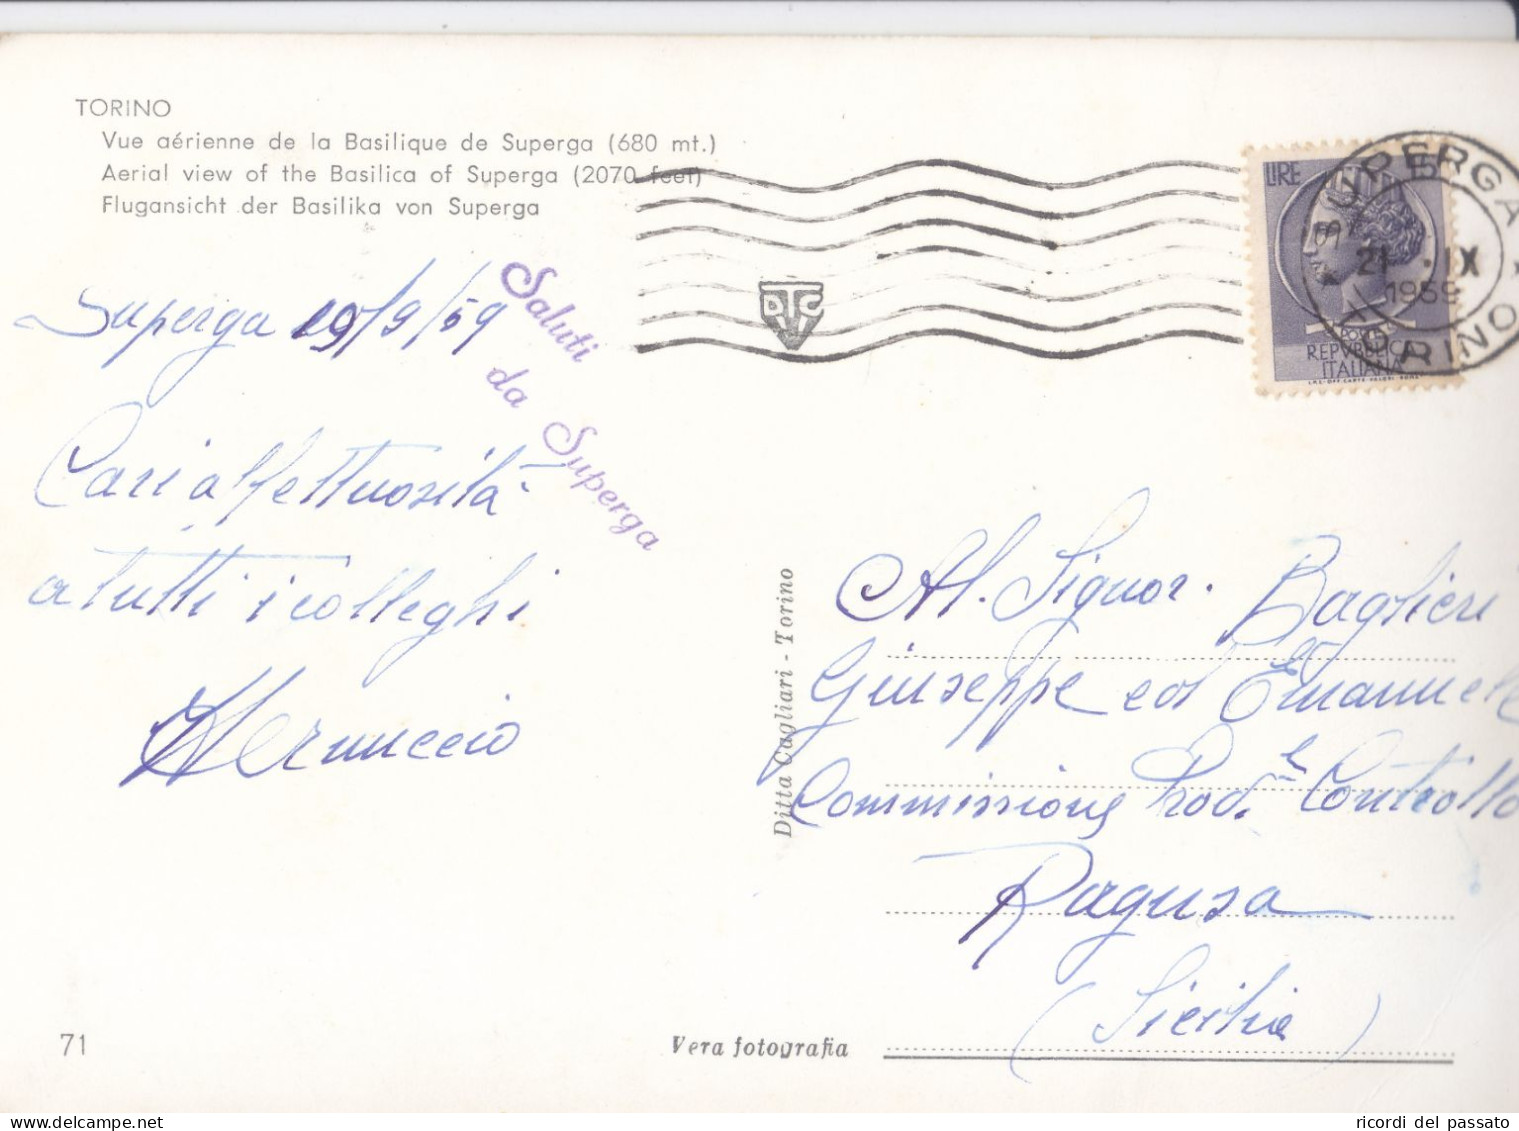 TORINO
Vue aérienne de la Basilique de Superga (680 mt.)
Aerial view of the Basilica of Superga (2070 feet)
Flugansicht der Basilika von Superga
SUPERGA
TORINO
21 . IX
1959
LIRE
POSTE
REPVBBLICA
ITALIANA
DTC
Superga 19/9/59
Saluti
da
Superga
Cari affettuosità
a tutti i colleghi
Ditta Cagliari - Torino
Al. Signor. Baglieri
Giuseppe ed Emanuele
Commissione Prod. e Controllo
Ragusa
(Sicilia)
71
Vera fotografia
ricordi del passato